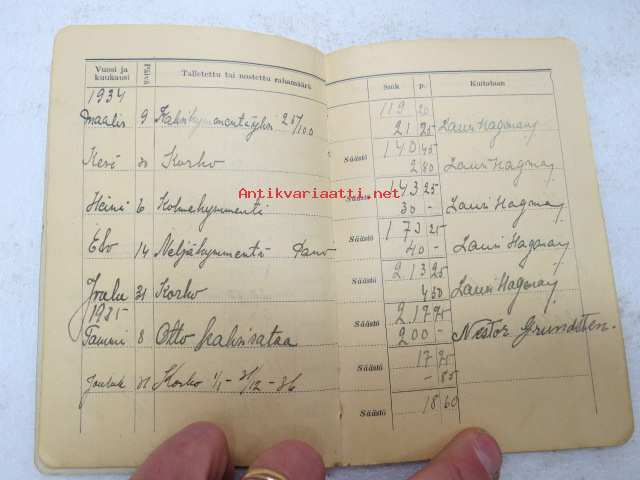 Vuosi ja kuukausi Päivä Talletettu tai nostettu rahamäärä Smk p. Kuitataan
1934 119 20
Maalis 9 Kaksikymmentäyksi 25/100 21 25 Lauri Hagman
Säästö 140 45
Kesä 31 Korko 2 80 Lauri Hagman
Säästö 143 25
Heinä 6 Kolmekymmentä 30 - Lauri Hagman
Säästö 173 25
Elo 14 Neljäkymmentä Pano 40 - Lauri Hagman
Säästö 213 25
Joulu 31 Korko 4 50 Lauri Hagman
1935 Säästö 217 75
Tammi 8 Otto kaksisataa 200 - Nestor Grundsten.
Säästö 17 75
Jouluk 31 Korko 1/1 - 31/12 - 36 - 85
Säästö 18 60
Antikvariaatti.net